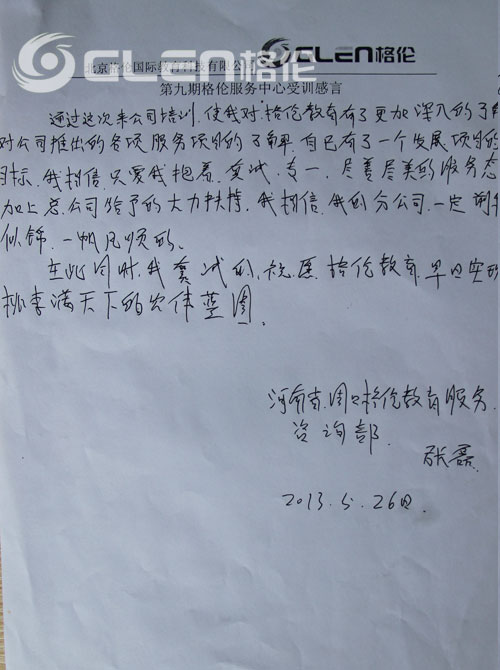 CLEN格伦
CLEN格伦
北京格伦国际教育科技有限公司
第九期格伦服务中心受训感言
通过这次来公司培训，使我对格伦教育有了更加深入的了解
对公司推出的各项服务项目的了解，自己有了一个发展项目的
目标，我相信，只要我抱着，真诚，专一，尽善尽美的服务态
加上总公司给予的大力扶持，我相信，我的分公司，一定
似锦，一帆风顺的。
在此同时，我真诚的，祝愿，格伦教育，早日实现
桃李满天下的宏伟蓝图。
河南省，周口格伦教育服务
咨询部，
张磊
2013.5.26日.